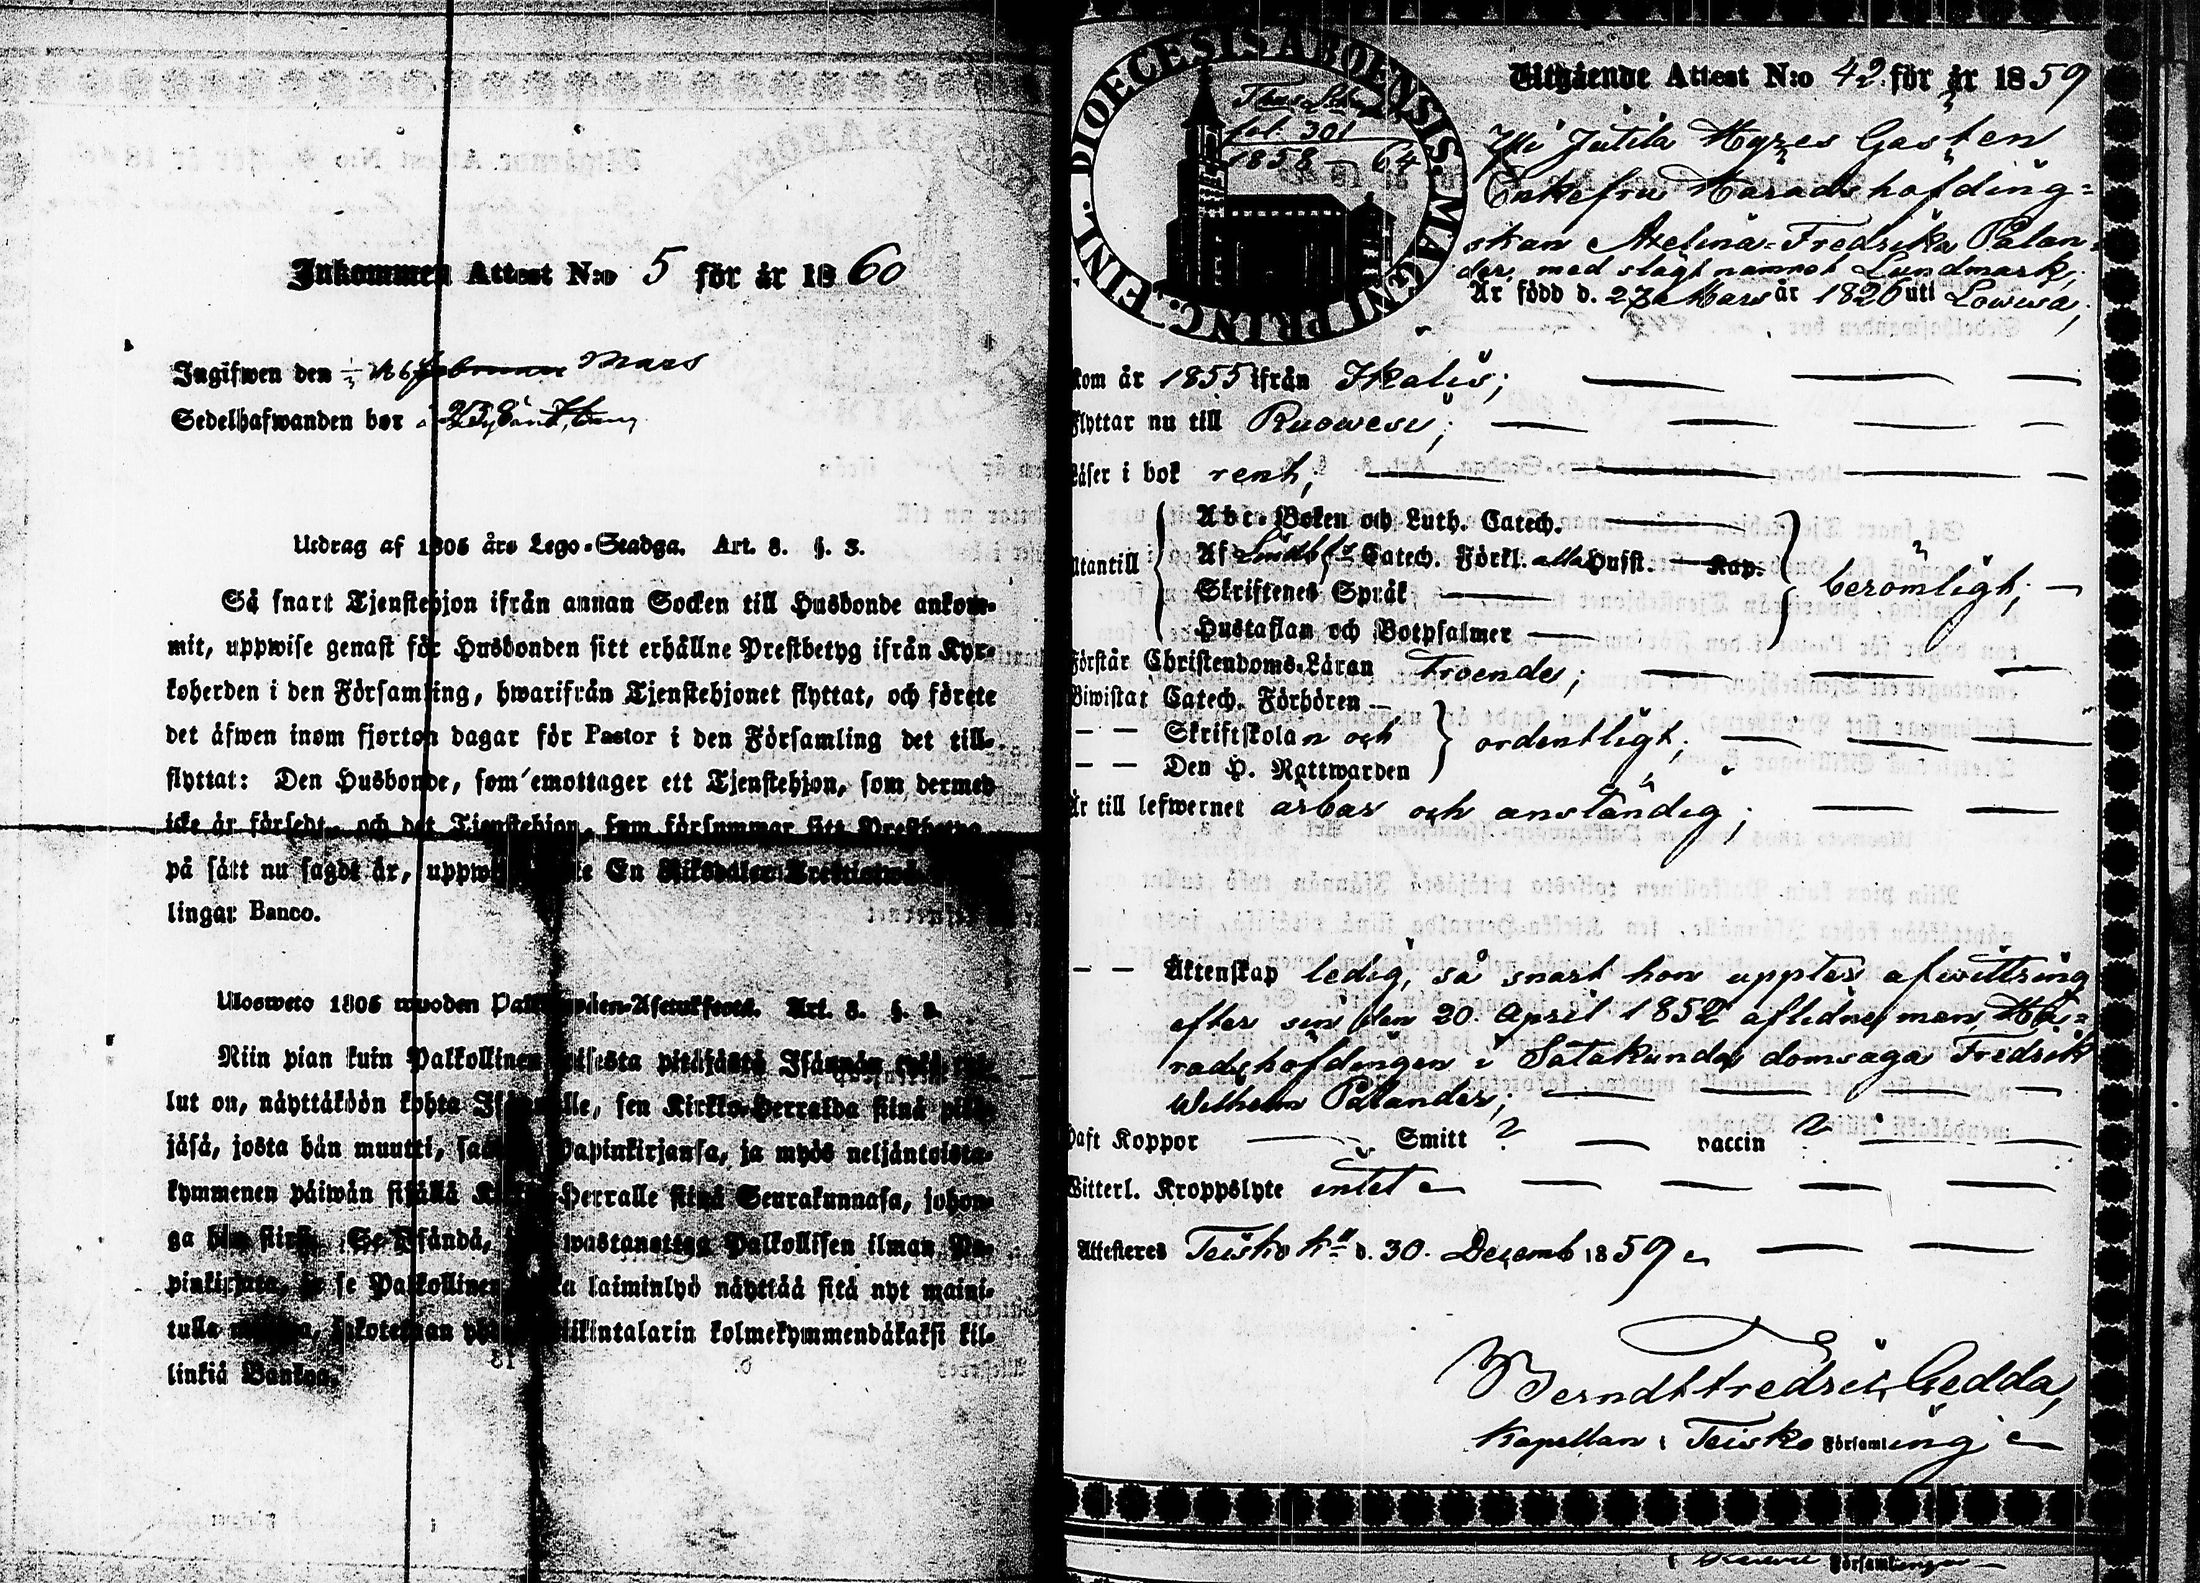 Inkommen Attest N:o 5 för år 1860
Ingifwen den Mars
Sedelhafwanden bor
Utdrag af 1805 års Lego-Stadga. Art. 8. §. 3.
Så snart Tjenstehjon ifrån annan Socken till Husbonde ankom-
mit, uppwise genast för Husbonden sitt erhållne Prestbetyg ifrån Kyr-
koherden i den Församling, hwarifrån Tjenstehjonet flyttat, och förete
det äfwen inom fjorton dagar för Pastor i den Församling det till-
flyttat: Den Husbonde, som emottager ett Tjenstehjon, som dermed
icke är försedt, och det Tjenstehjon, som försummar sitt Prestbetyg
på sätt nu sagdt är, En Riksdaler
lingar Banco.
Ulosweto 1805 wuoden Art. 8. §. 3.
Niin pian kuin Palkollinen toisesta pitäjästä Isännän
lut on, näyttäköön kohta Isännälle, sen Kirkko-Herralda siinä pitä-
jäsä, josta hän muutti, Papinkirjansa, ja myös neljäntoista-
kymmenen päiwän sisällä Kirkko-Herralle siinä Seurakunnasa, johon-
ga hän Isändä, wastanottaa Palkollisen ilman Pa-
pinkirjata, ja se Palkollinen laiminlyö näyttää sitä nyt maini-
tulla kolmekymmendäkaksi kil-
linkiä Bankoa.
FINL. DIOECESIS ABOENSIS. MAGNI PRINC.
fol. 301
1858 — 64
Utgående Attest N:o 42. för år 1859
Gasten
Enkefru Häradshöfding-
skan Axelina Fredrika Palan-
der, med slägt namnet Lundmark,
Är född d. 27 Mars år 1826 uti Lowisa,
kom år 1855 ifrån Ikalis;
flyttar nu till Ruowesi;
Läser i bok rent;
Abc-Boken och Luth. Catech.
Utantill Af Catech. Förkl. alla Husst. Kap.
Skriftenes Språk
berömligt;
Hustaflan och Botpsalmer
Förstår Christendoms-Läran troende;
Biwistat Catech. Förhören
— — Skriftskolan och ordentligt;
— — Den H. Nattwarden
Är till lefwernet ärbar och anständig;
— — Äktenskap ledig, så snart hon uppter afwittring
efter sin den 20. April 1852 aflidne man, Hä-
radshöfdingen i Satakunda domsaga Fredrik
Wilhelm Palander;
Haft Koppor Smitt ? vaccin ?
Witterl. Kroppslyte intet
Attesteres Teisko d. 30. Decemb 1859
Berndt Fredric Gedda,
Kapellan i Teisko Församling
Församlingen